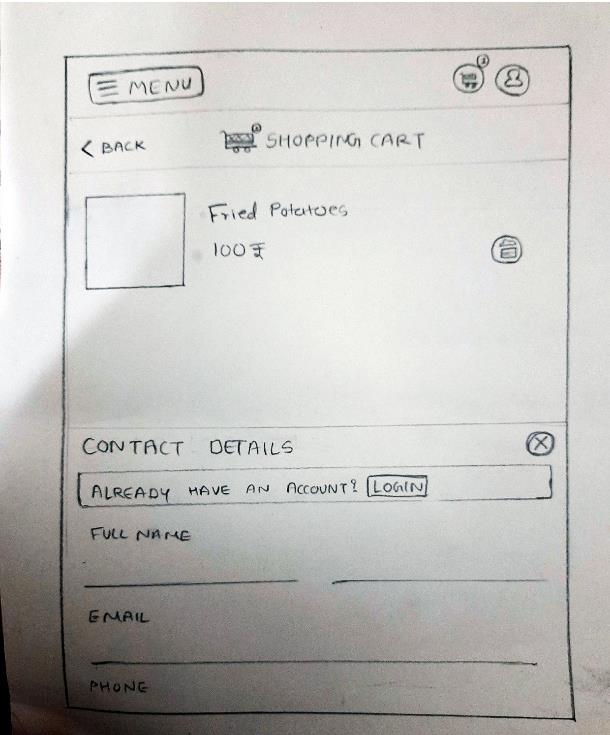 MENU
< BACK SHOPPING CART
Fried Potatoes
100 ₹
CONTACT DETAILS
ALREADY HAVE AN ACCOUNT? LOGIN
FULL NAME
EMAIL
PHONE